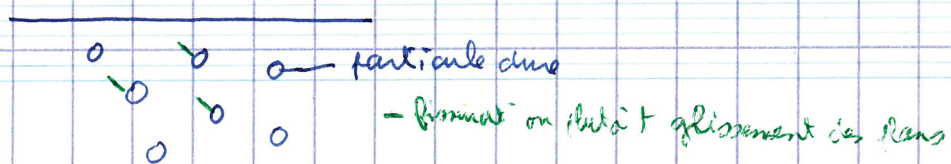 particule dure
- fissurat° ou plutôt glissement des plans